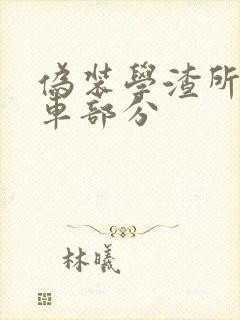 偽裝學渣所
車部分
林曦